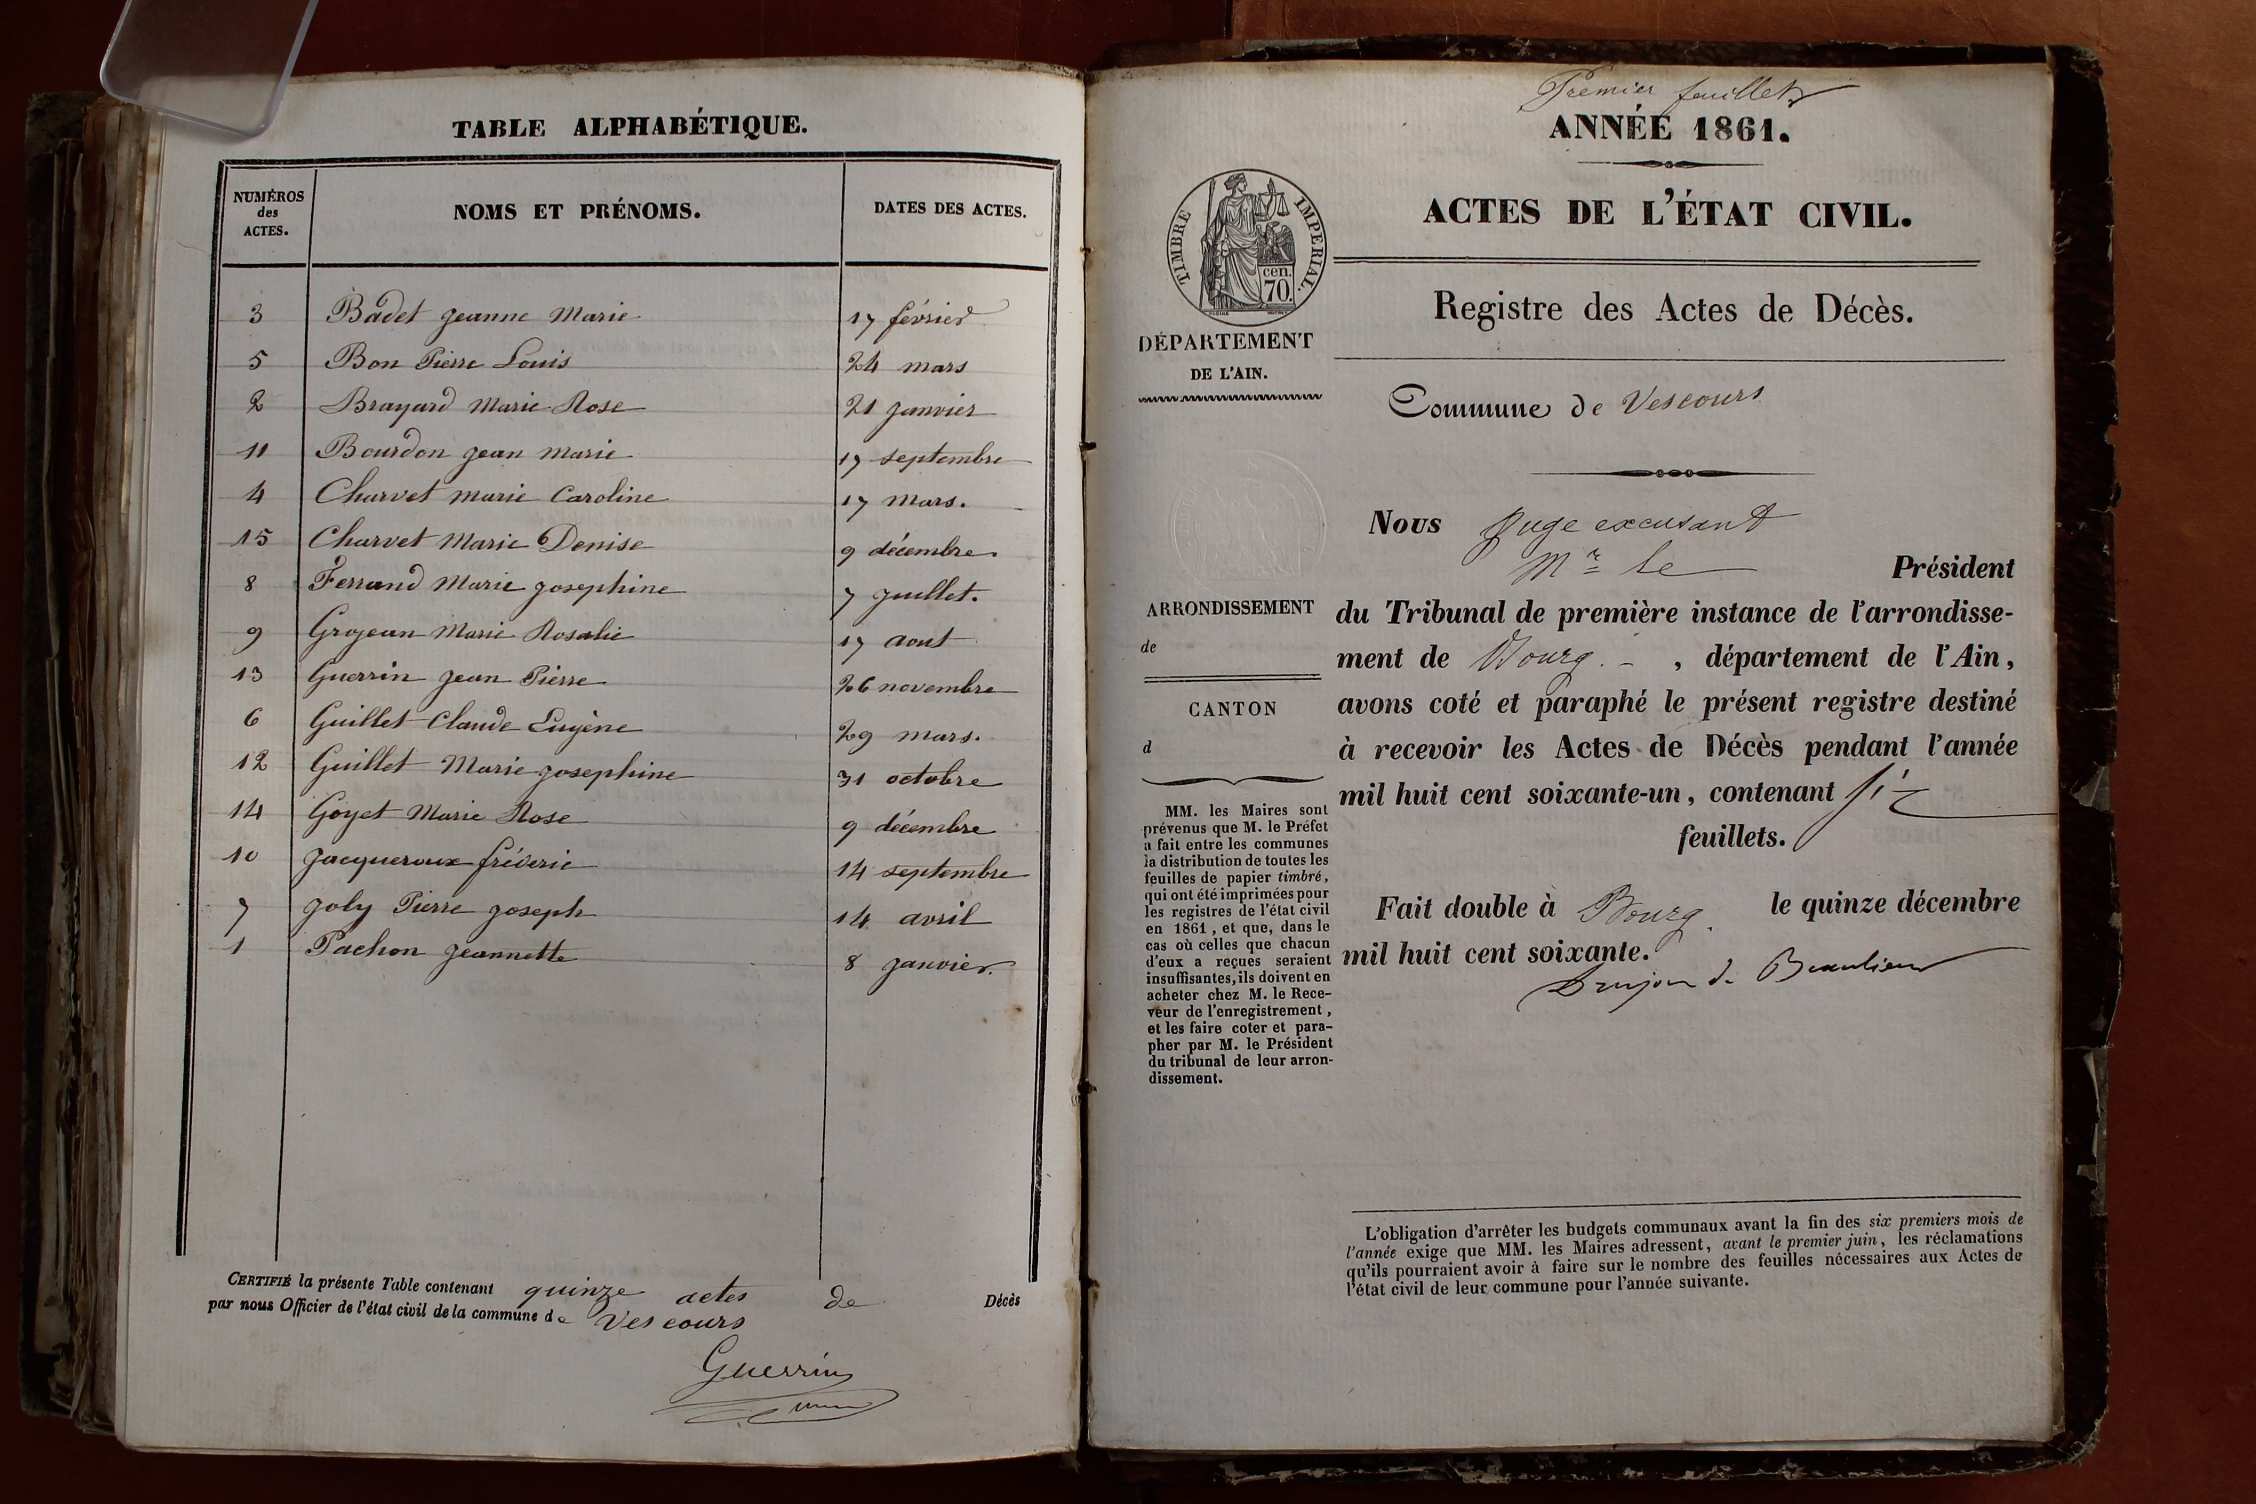 TABLE ALPHABÉTIQUE.
NUMÉROS
des
ACTES.
NOMS ET PRÉNOMS.
DATES DES ACTES.
3 Badet Jeanne Marie 17 février
5 Bon Pierre Louis 24 mars
2 Brayard Marie Rose 21 janvier
11 Bourdon Jean Marie 17 septembre
4 Charvet Marie Caroline 17 mars.
15 Charvet Marie Denise 9 décembre.
8 Ferrand Marie Josephine 7 juillet.
9 Grojean Marie Rosalie 17 aout
13 Guerrin Jean Pierre 26 novembre
6 Guillet Claude Eugène 29 mars.
12 Guillet Marie Josephine 31 octobre
14 Goyet Marie Rose 9 décembre
10 Jacqueroux fréderic 14 septembre
7 Joly Pierre Joseph 14 avril
1 Pachon Jeannette 8 janvier.
CERTIFIÉ la présente Table contenant quinze actes de Décès
par nous Officier de l'état civil de la commune de Vescours
Guerrin
Premier feuillet
ANNÉE 1861.
ACTES DE L'ÉTAT CIVIL.
TIMBRE IMPERIAL.
cen.
70.
Registre des Actes de Décès.
DÉPARTEMENT
DE L'AIN.
Commune de Vescours
Nous Juge excusant
Mr le Président
du Tribunal de première instance de l'arrondisse-
ment de Bourg. , département de l'Ain,
avons coté et paraphé le présent registre destiné
à recevoir les Actes de Décès pendant l'année
mil huit cent soixante-un, contenant six
feuillets.
Fait double à Bourg. le quinze décembre
mil huit cent soixante.
Drujon de Beaulieu
ARRONDISSEMENT
de
CANTON
d
MM. les Maires sont
prévenus que M. le Préfet
a fait entre les communes
la distribution de toutes les
feuilles de papier timbré,
qui ont été imprimées pour
les registres de l'état civil
en 1861, et que, dans le
cas où celles que chacun
d'eux a reçues seraient
insuffisantes, ils doivent en
acheter chez M. le Rece-
veur de l'enregistrement,
et les faire coter et para-
pher par M. le Président
du tribunal de leur arron-
dissement.
L'obligation d'arrêter les budgets communaux avant la fin des six premiers mois de
l'année exige que MM. les Maires adressent, avant le premier juin, les réclamations
qu'ils pourraient avoir à faire sur le nombre des feuilles nécessaires aux Actes de
l'état civil de leur commune pour l'année suivante.